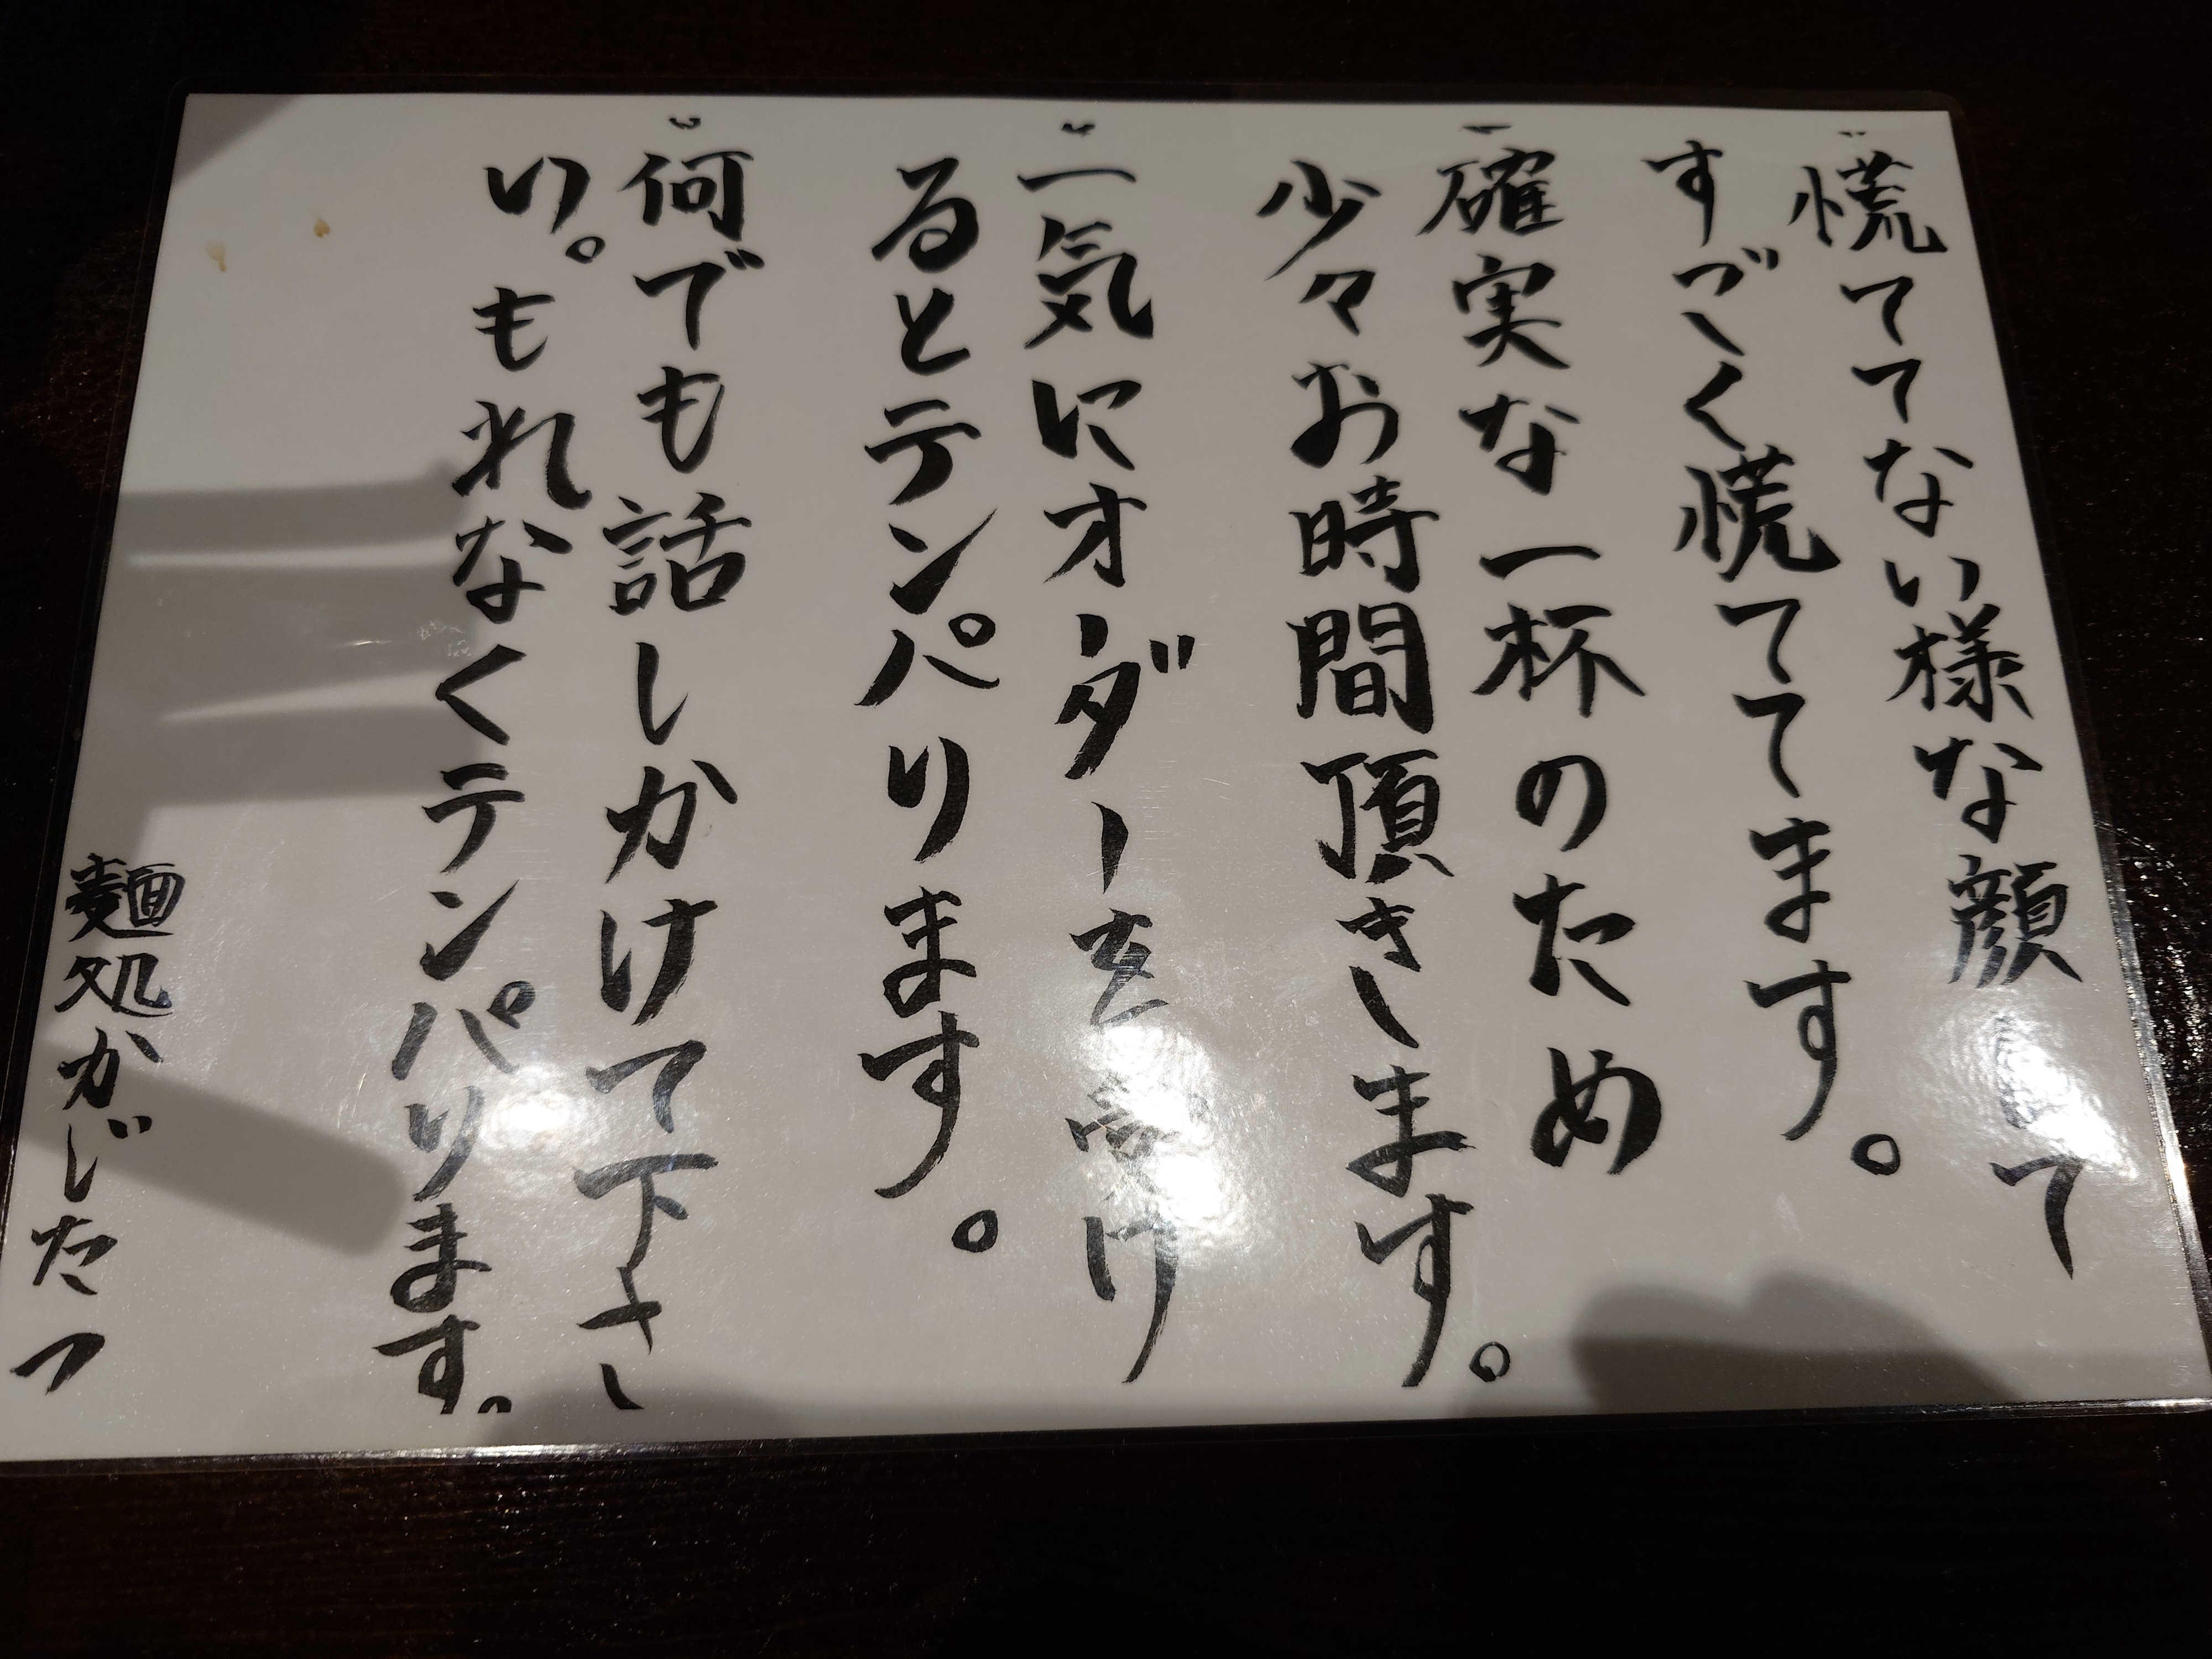 慌ててない様な顔して
すごく慌ててます。
確実な一杯のため
少々お時間頂きます。
一気にオーダーを受け
るとテンパります。
何でも話しかけて下さ
い。もれなくテンパります。
麺処かじたつ